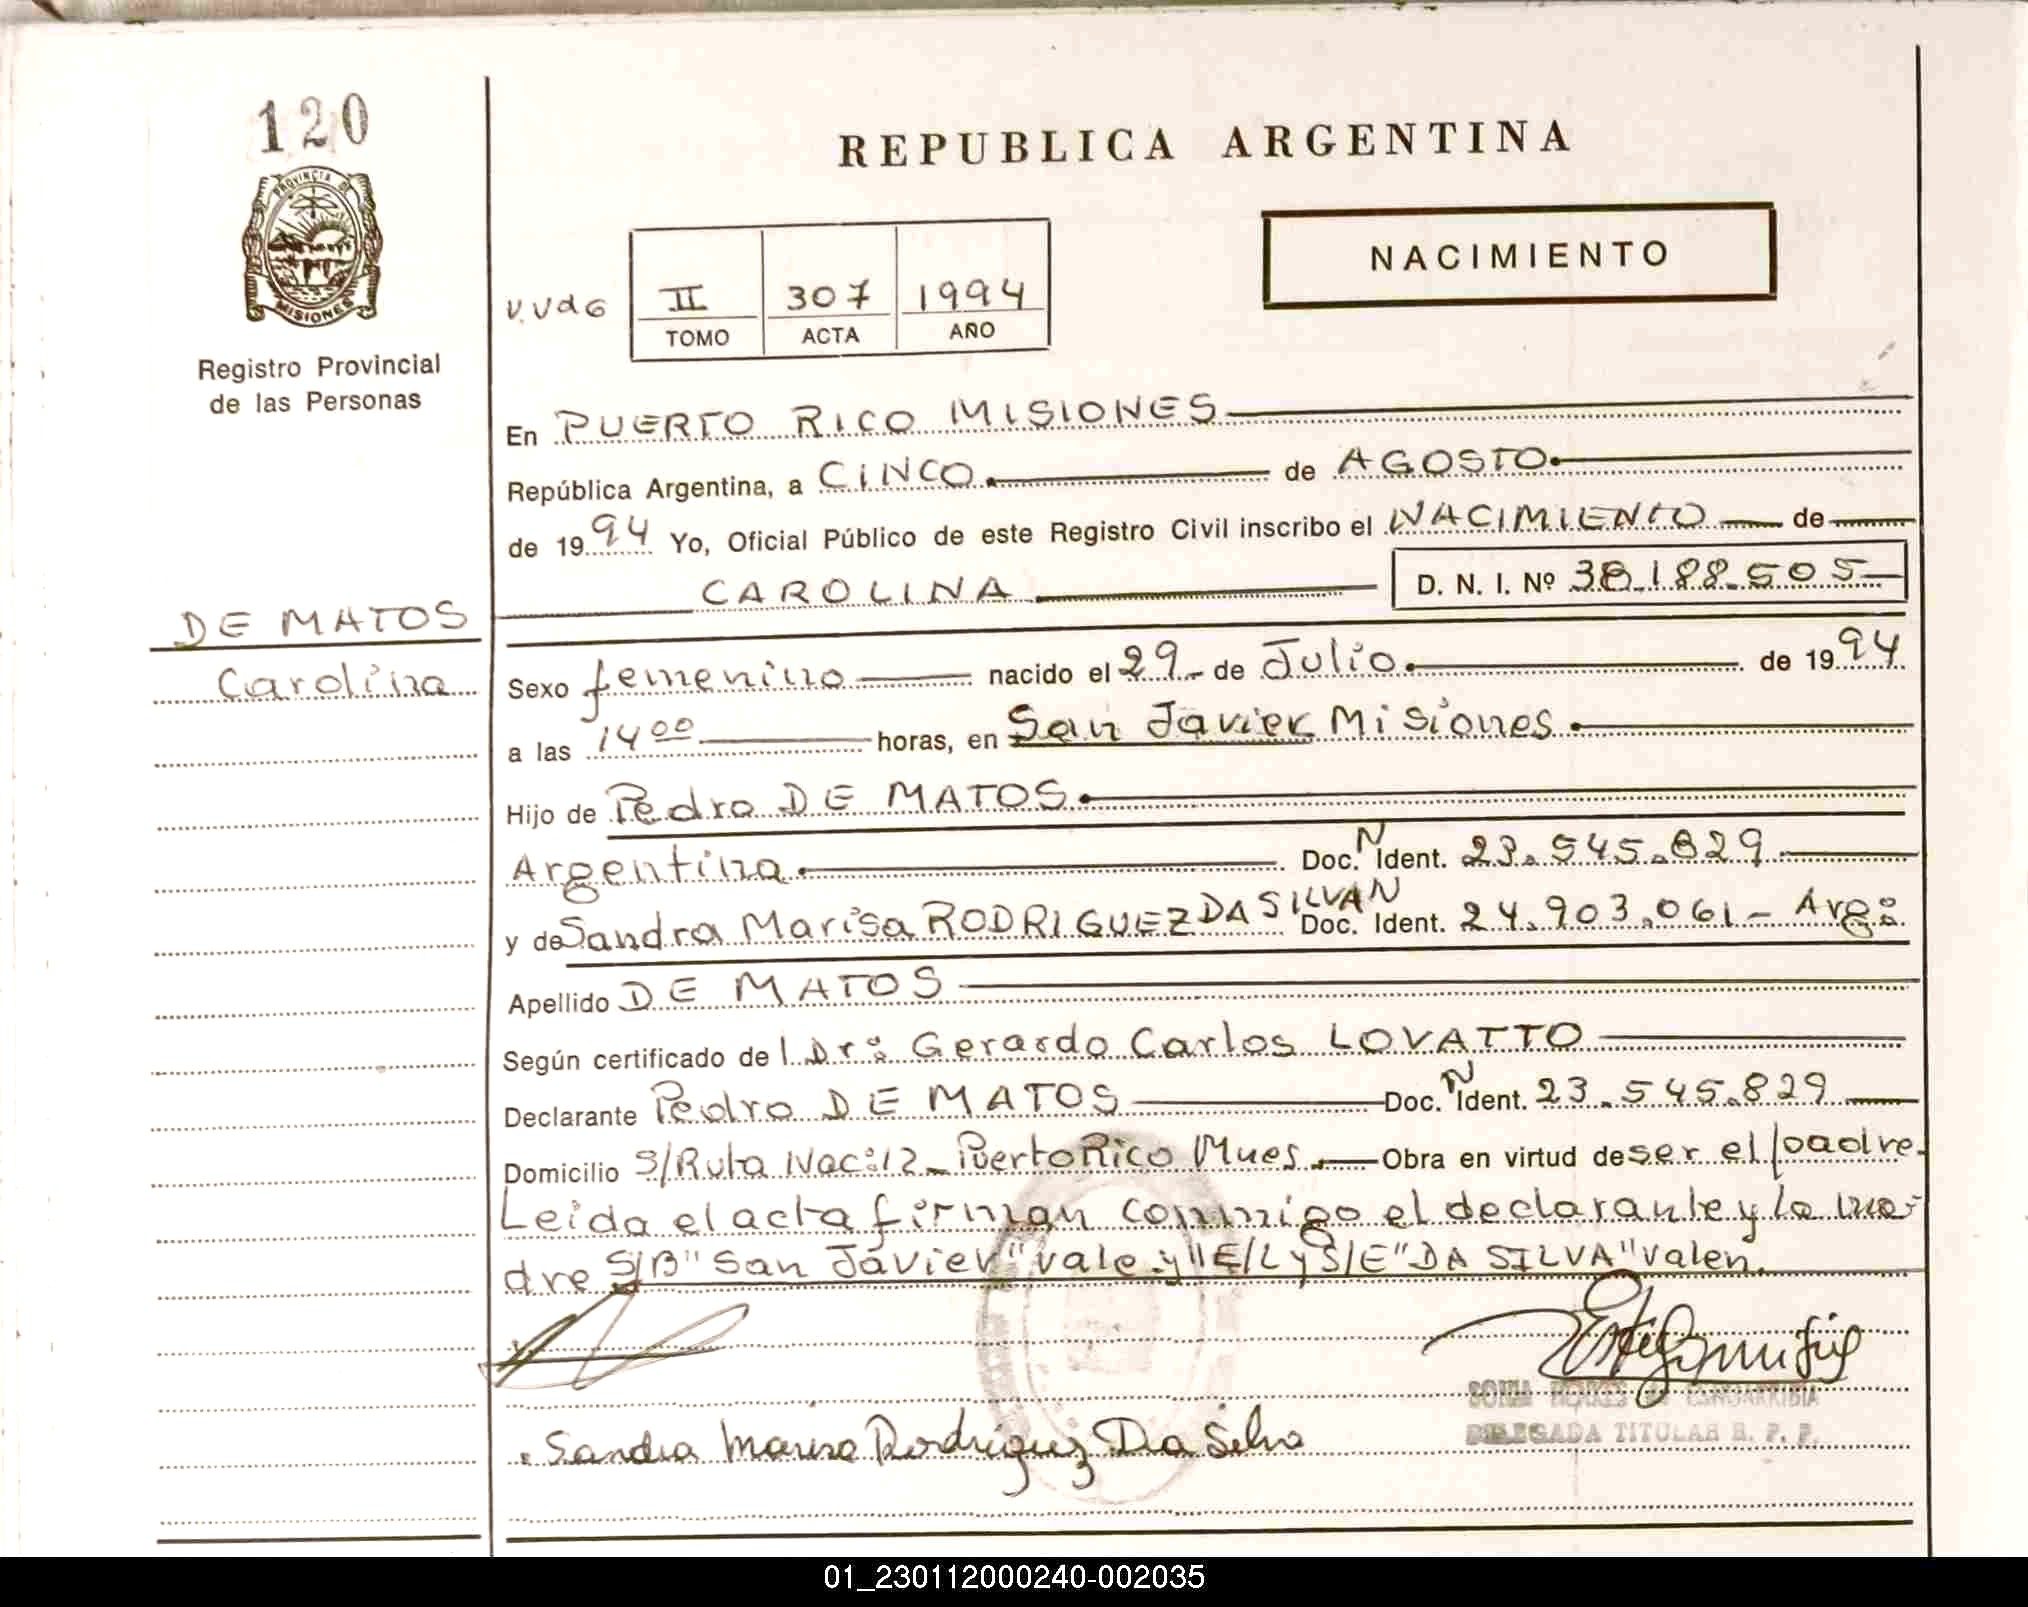 120
PROVINCIA DE
MISIONES
Registro Provincial
de las Personas
DE MATOS
Carolina
REPUBLICA ARGENTINA
NACIMIENTO
II 307 1994
TOMO ACTA AÑO
En PUERTO RICO MISIONES
República Argentina, a CINCO de AGOSTO
de 1994 Yo, Oficial Público de este Registro Civil inscribo el NACIMIENTO de
CAROLINA D. N. I. Nº 38.188.505
Sexo femenino nacido el 29 de Julio de 1994
a las 14 00 horas, en San Javier Misiones
Hijo de Pedro DE MATOS
Argentina Doc. N Ident. 23.545.829
y de Sandra Marisa RODRIGUEZ DA SILVA Doc. N Ident. 24.903.061 - Argº
Apellido DE MATOS
Según certificado de l Drº Gerardo Carlos LOVATTO
Declarante Pedro DE MATOS Doc. N Ident. 23.545.829
Domicilio S/Ruta Nacº12 - Puerto Rico Mnes Obra en virtud de ser el padre.
Leida el acta firman conmigo el declarante y la ma-
dre S/B "San Javier" vale y "E/L y S/E "DA SILVA" valen.
Sandra Marisa Rodriguez Da Silva
DELEGADA TITULAR R. P. P.
01_230112000240-002035